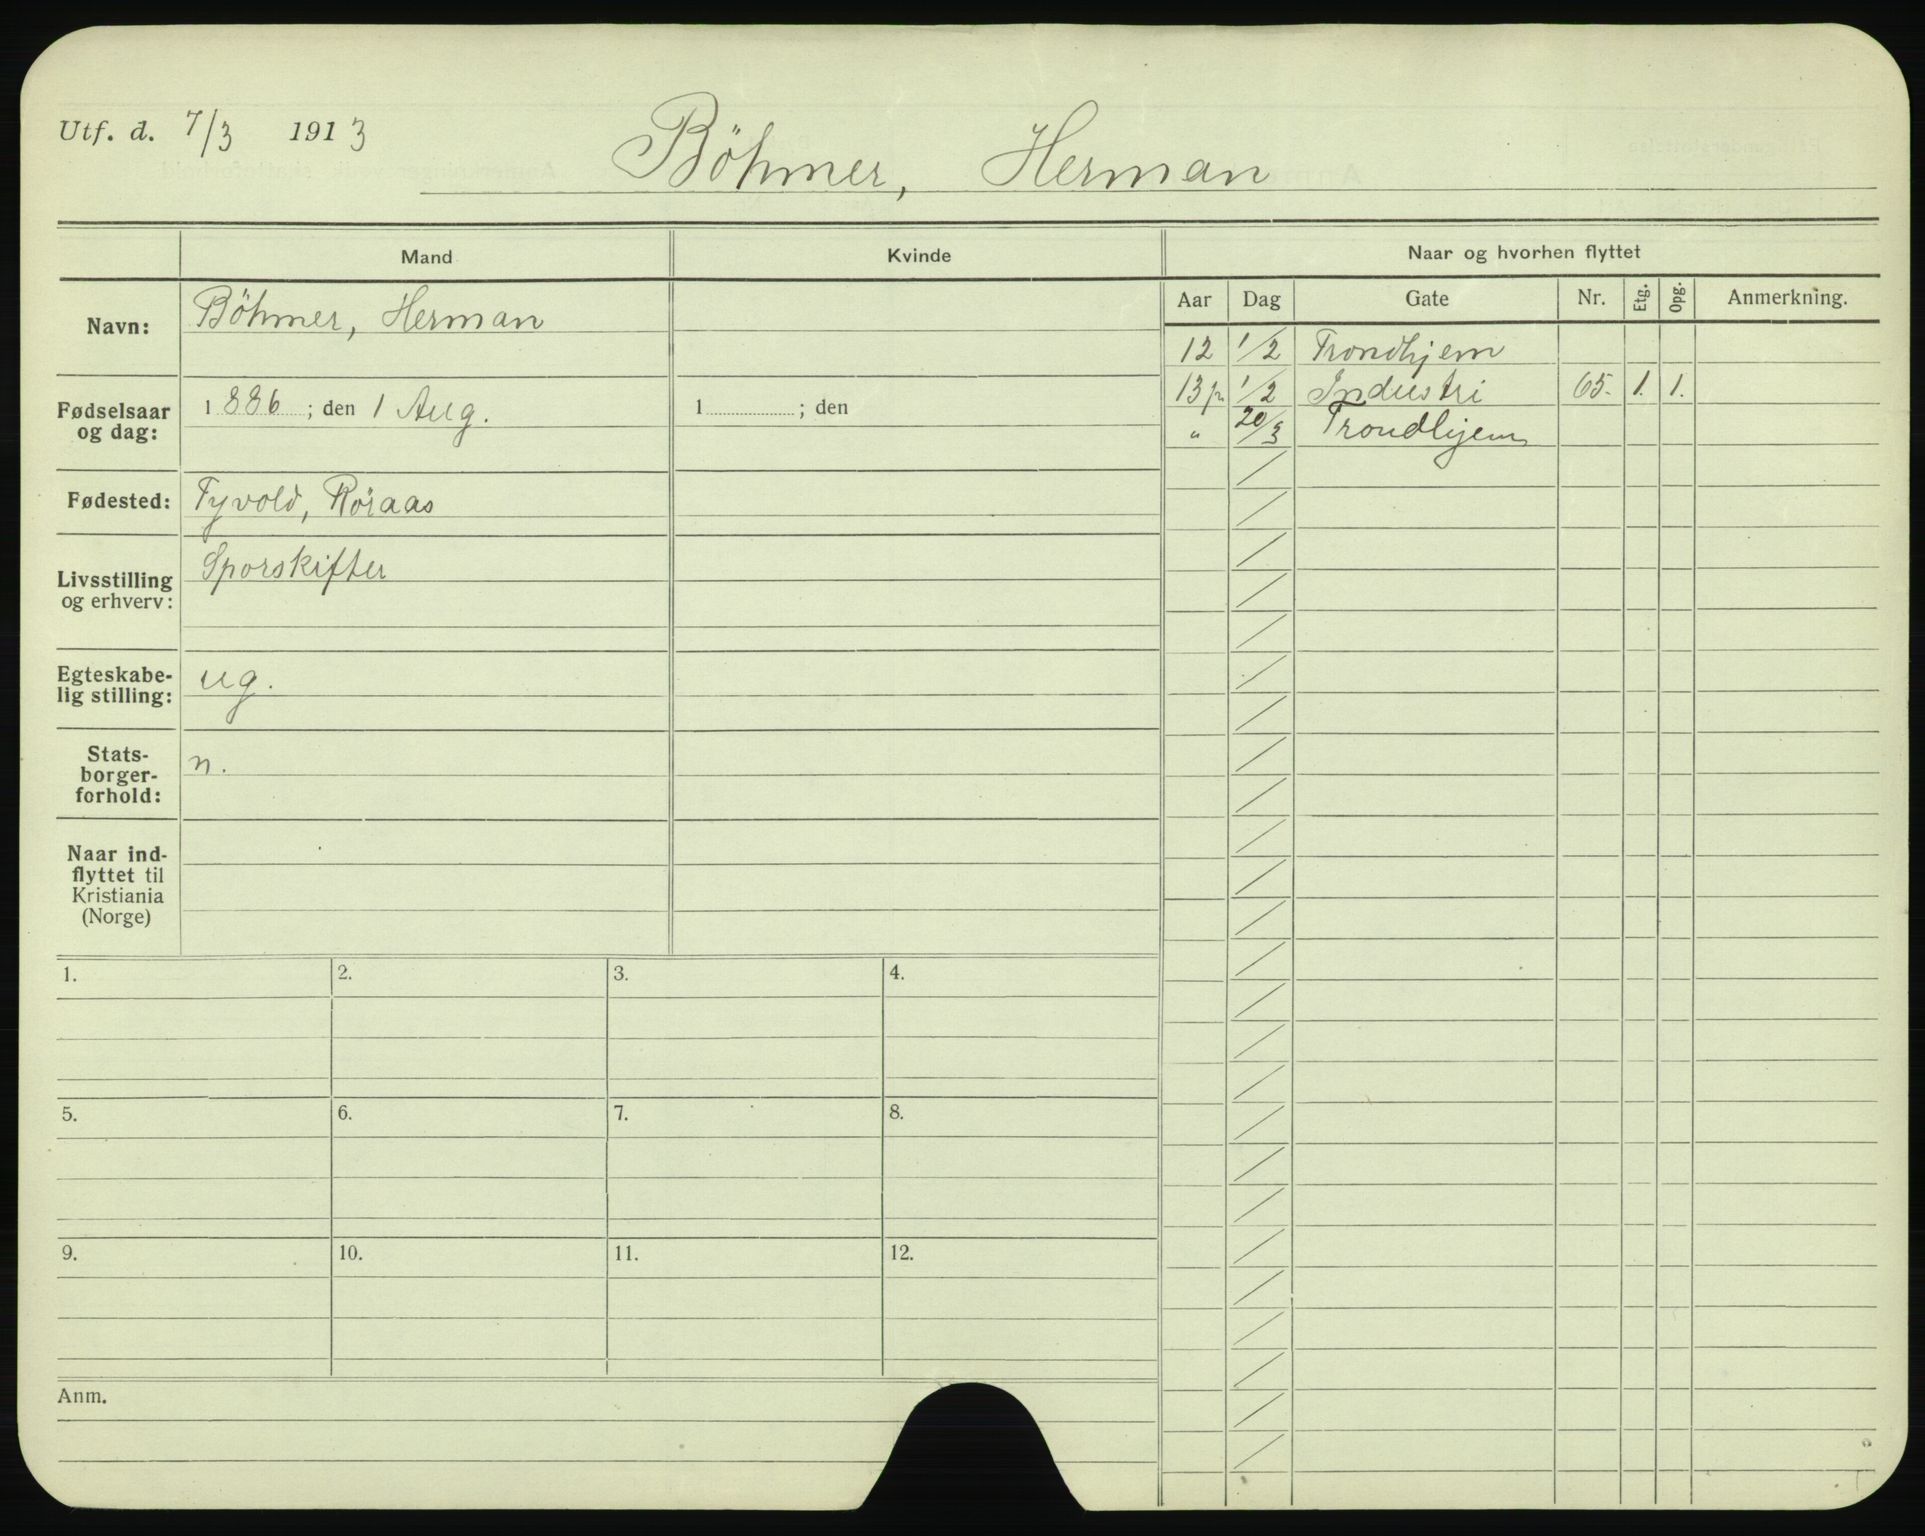 Utf. d. 7/3 1913
Böhmer, Herman
Mand
Kvinde
Naar og hvorhen flyttet
Aar Dag Gate Nr. Etg. Opg. Anmerkning.
Navn: Böhmer, Herman
12 1/2 Trondhjem
13 1/2 Industri 65. 1. 1.
" 20/3 Trondhjem
Fødselsaar
og dag:
1886; den 1 Aug.
1 ; den
Fødested: Tyvold, Röraas
Livsstilling
og erhverv:
Sporskifter
Egteskabe-
lig stilling:
ug.
Stats-
borger-
forhold:
n.
Naar ind-
flyttet til
Kristiania
(Norge)
1. 2. 3. 4.
5. 6. 7. 8.
9. 10. 11. 12.
Anm.